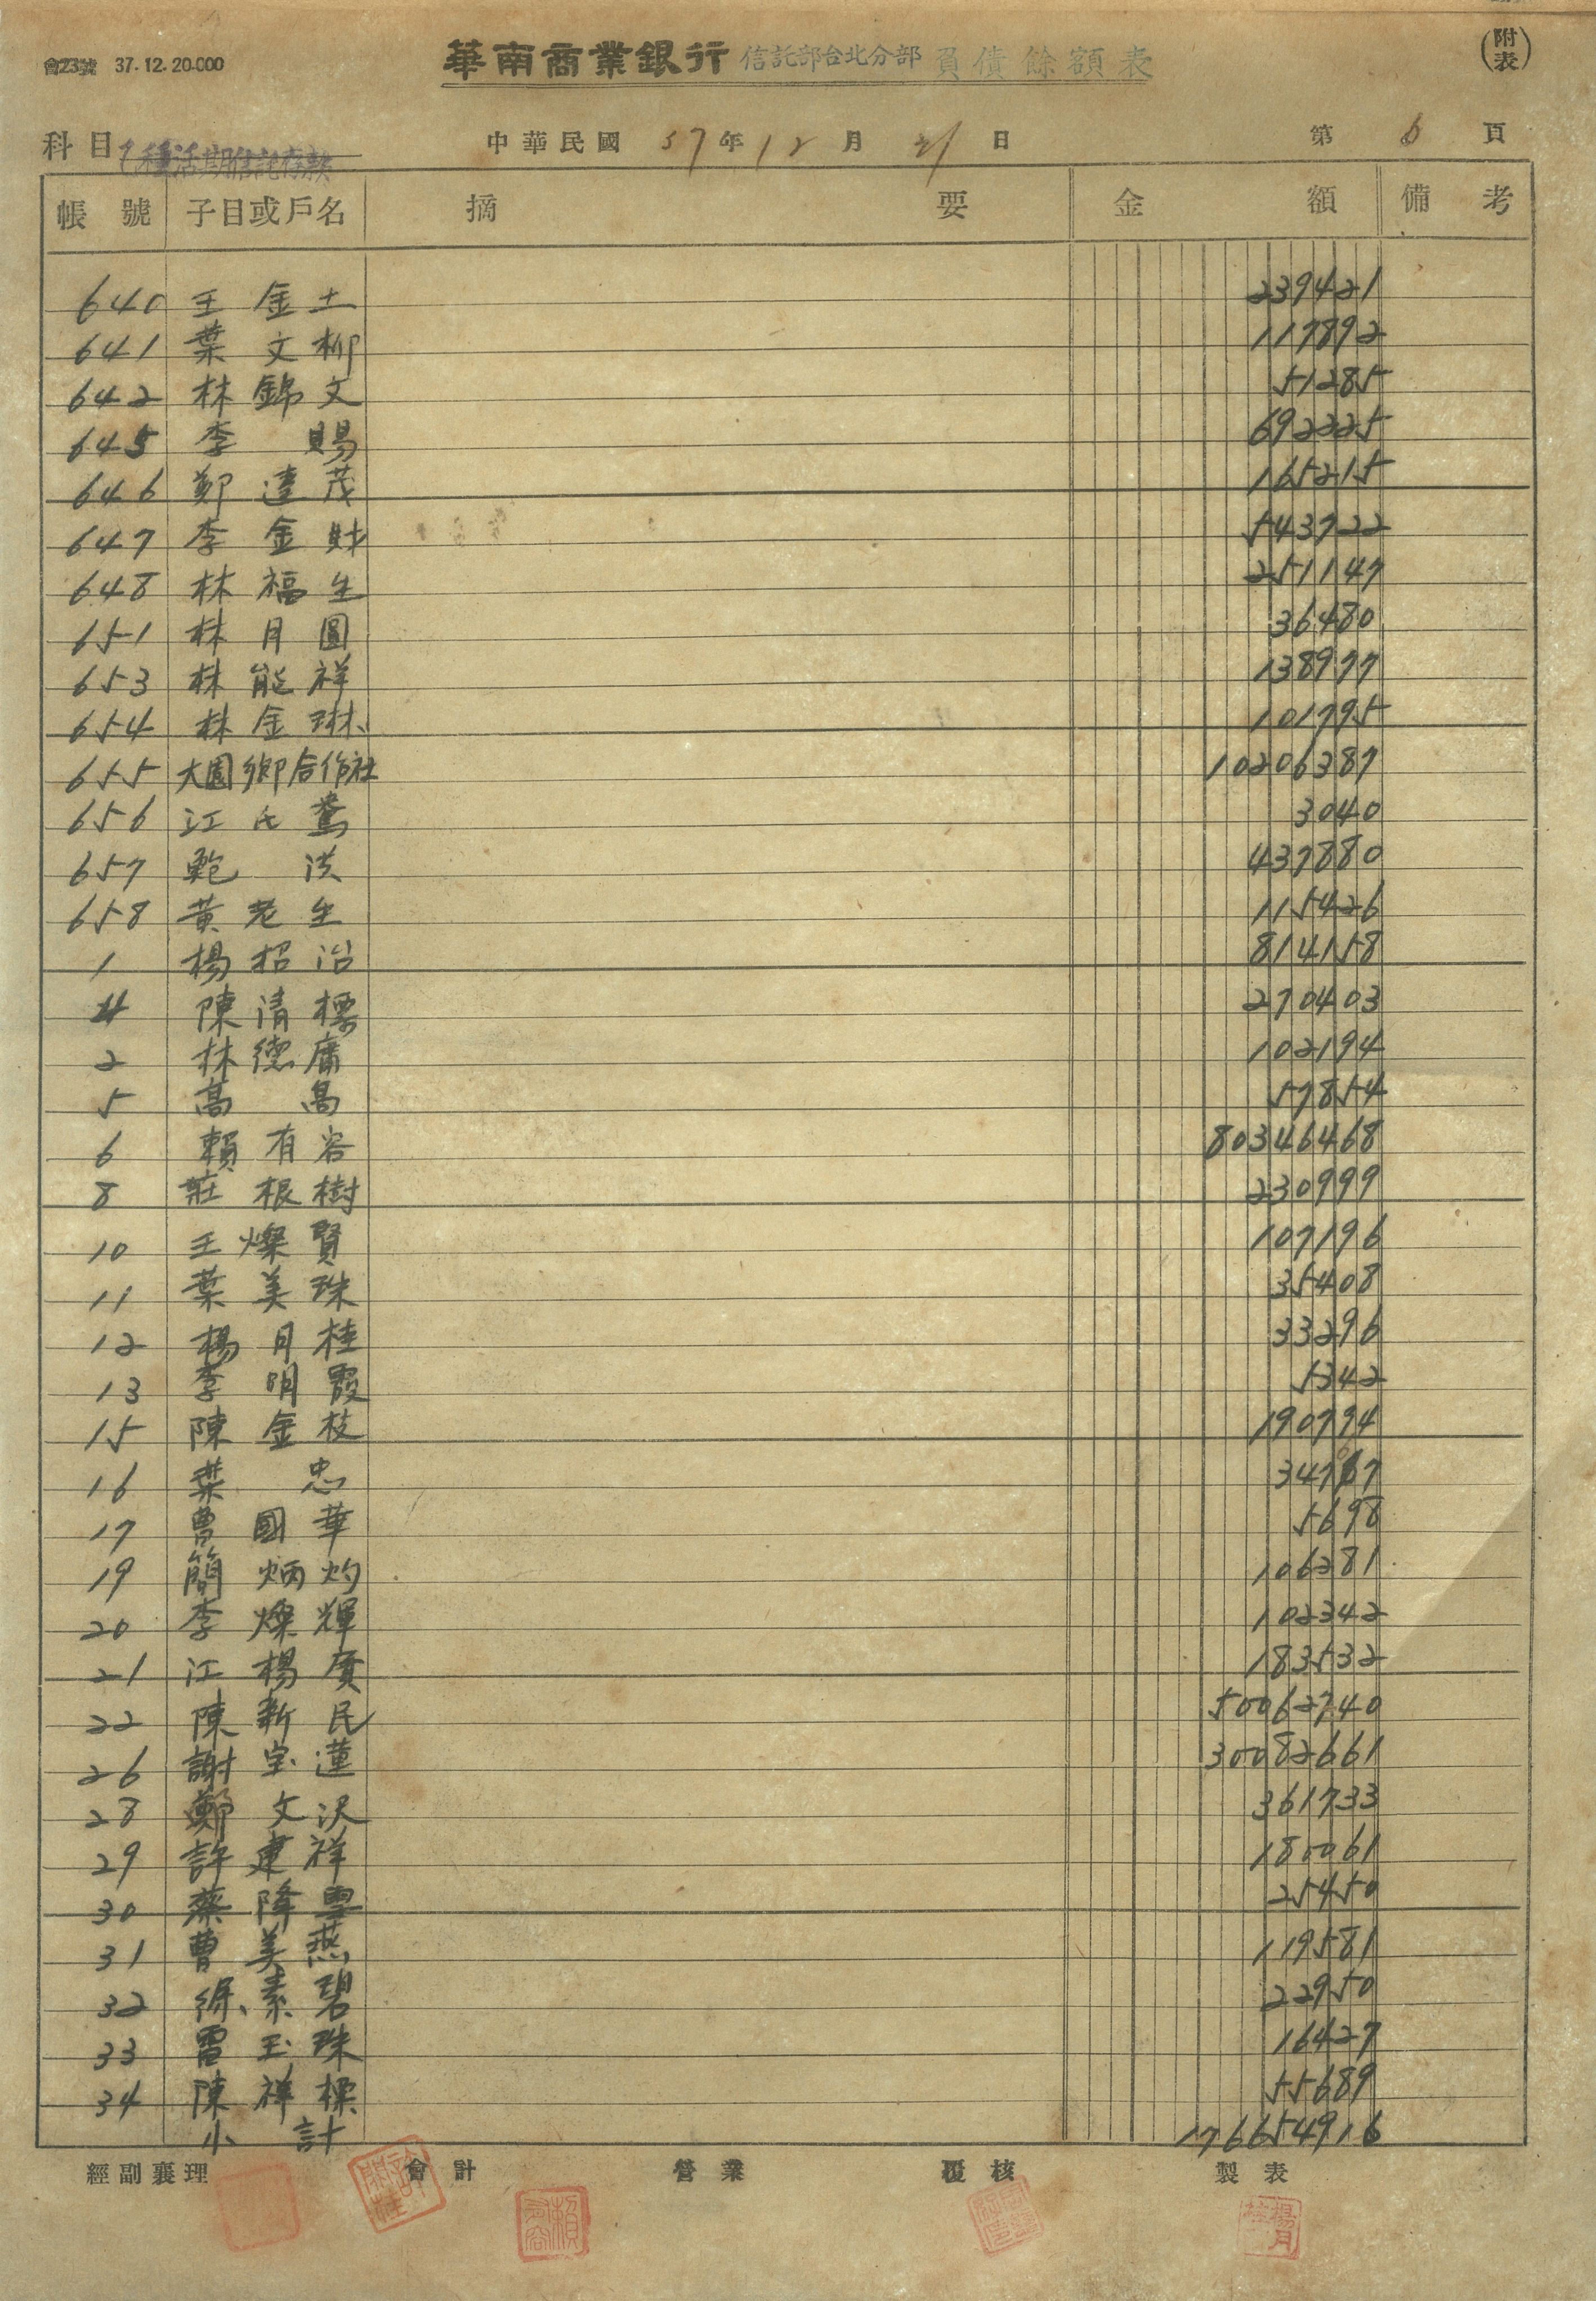 會23號 37.12.20.000
華南商業銀行 信託部台北分部 負債餘額表
(附表)
科目 乙種活期信託存款 中華民國 37年12月21日 第6頁
帳號 子目或戶名 摘要 金額 備考
640 王金土 239421
641 葉文柳 117892
642 林錦文 51285
645 李賜 692325
646 鄭達茂 165215
647 李金財 543722
648 林福生 251147
651 林月圓 36480
653 林能祥 138977
654 林金琳 101795
655 大園鄉合作社 10206387
656 江氏鴦 3040
657 鮑洪 437880
658 黃老生 115426
1 楊招治 814158
4 陳清標 270403
2 林德庸 102194
5 高 57854
6 賴有容 80346468
8 莊根樹 230999
10 王燦賢 107196
11 葉美珠 35408
12 楊月桂 33296
13 李明霞 5342
15 陳金枝 190794
16 葉忠 34767
17 曹國華 5698
19 簡炳灼 106381
20 李燦輝 102342
21 江楊廣 183532
22 陳新民 50062740
26 謝宝蓮 30082661
28 鄭文沢 361733
29 許建祥 180061
30 蔡降雲 25450
31 曹美燕 119581
32 徐素碧 22950
33 雷玉珠 16427
34 陳祥樑 55689
小計 176654916
經副襄理 會計 營業 覆核 製表
賴有容 楊月桂